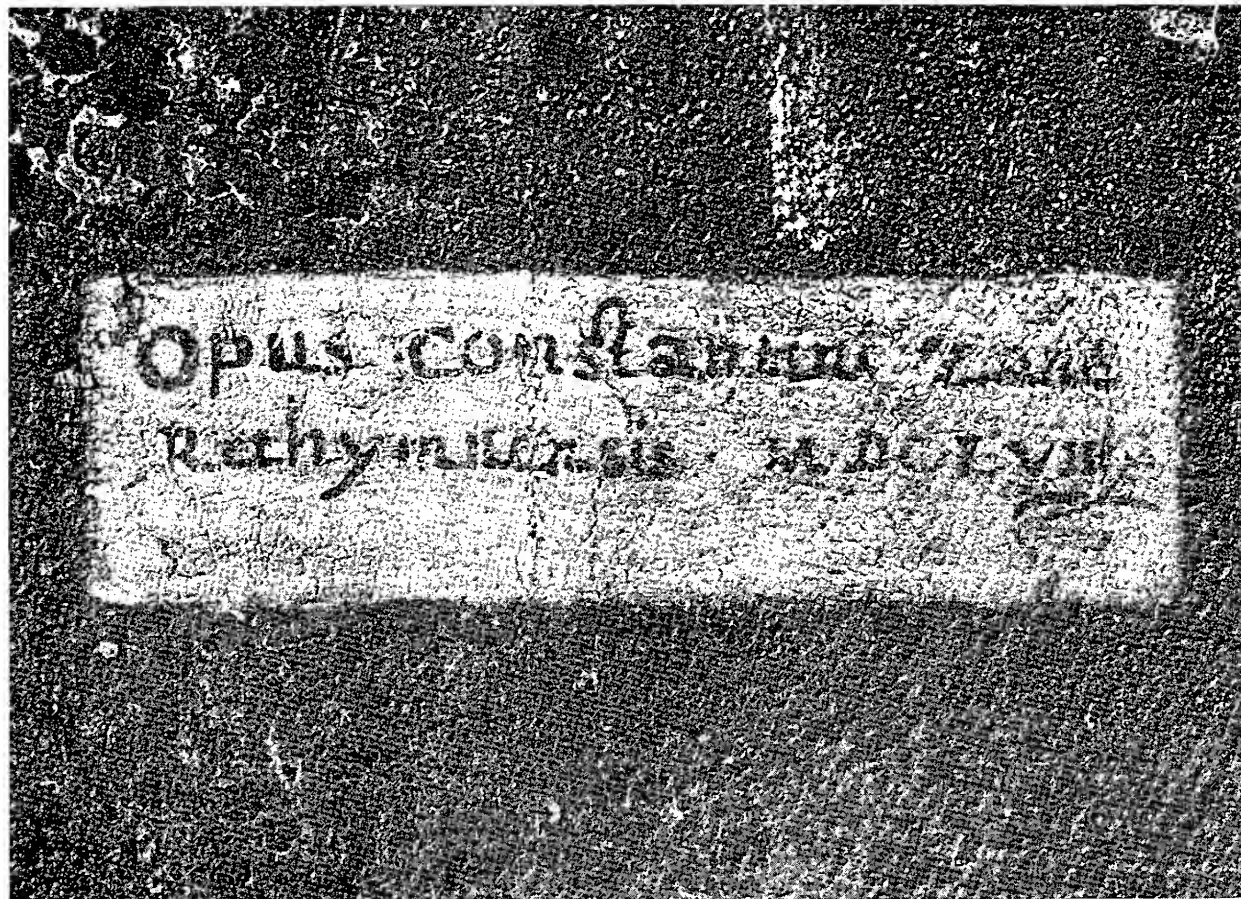 Opus Constantini Zane
Rethymnensis M.D.LVII